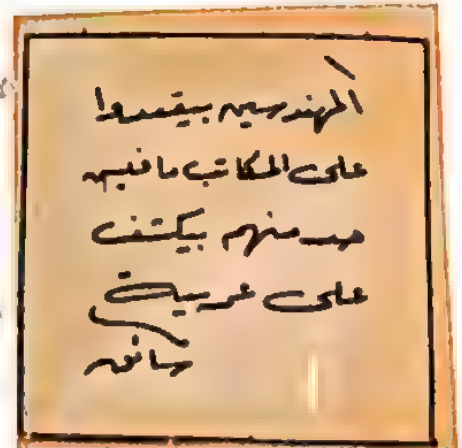 المهندسين بيقعدوا
على المكاتب مافيش
حد منهم بيكشف
على عربية